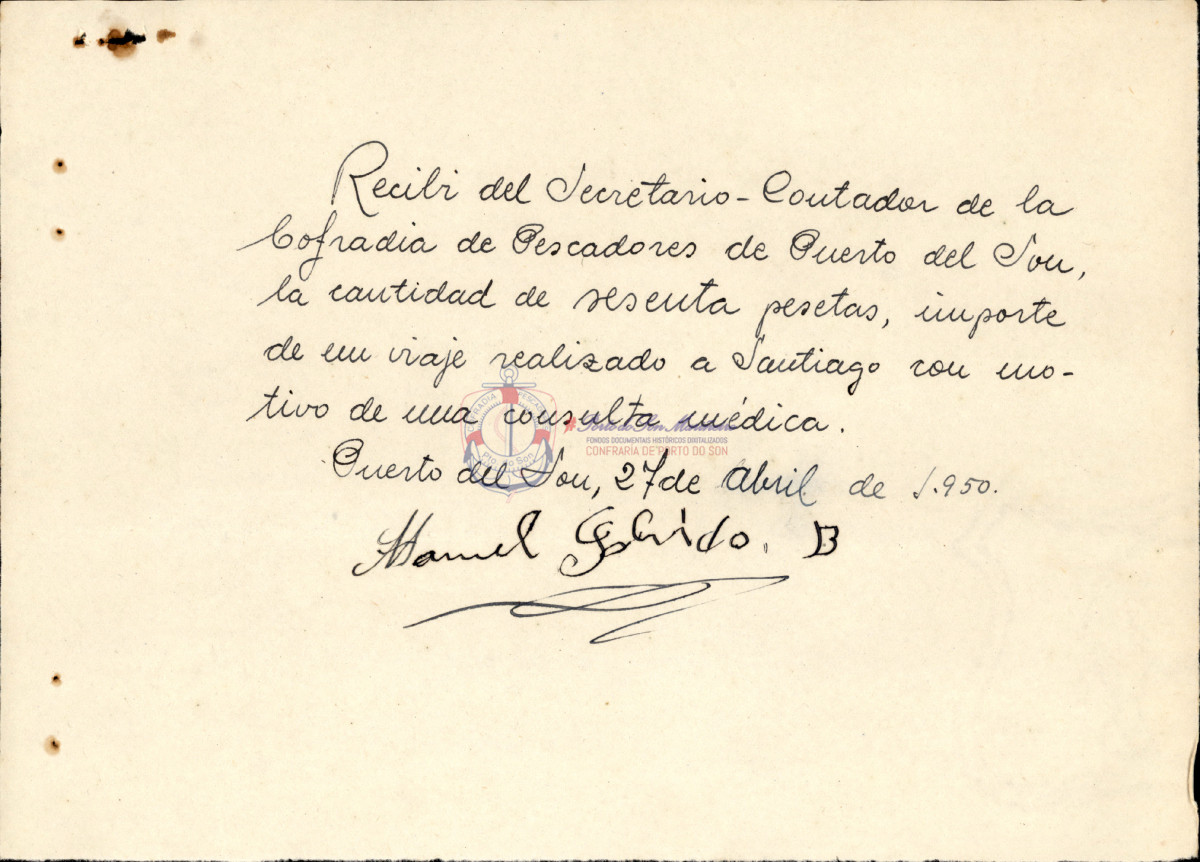 Recibi del Secretario-Contador de la
Cofradia de Pescadores de Puerto del Son,
la cantidad de sesenta pesetas, importe
de un viaje realizado a Santiago con mo-
tivo de una consulta médica.
COFRADIA PESCADORES
Pto. do Son
FONDOS DOCUMENTAIS HISTÓRICOS DIGITALIZADOS
CONFRARIA DE PORTO DO SON
Puerto del Son, 27 de Abril de 1.950.
Manuel B